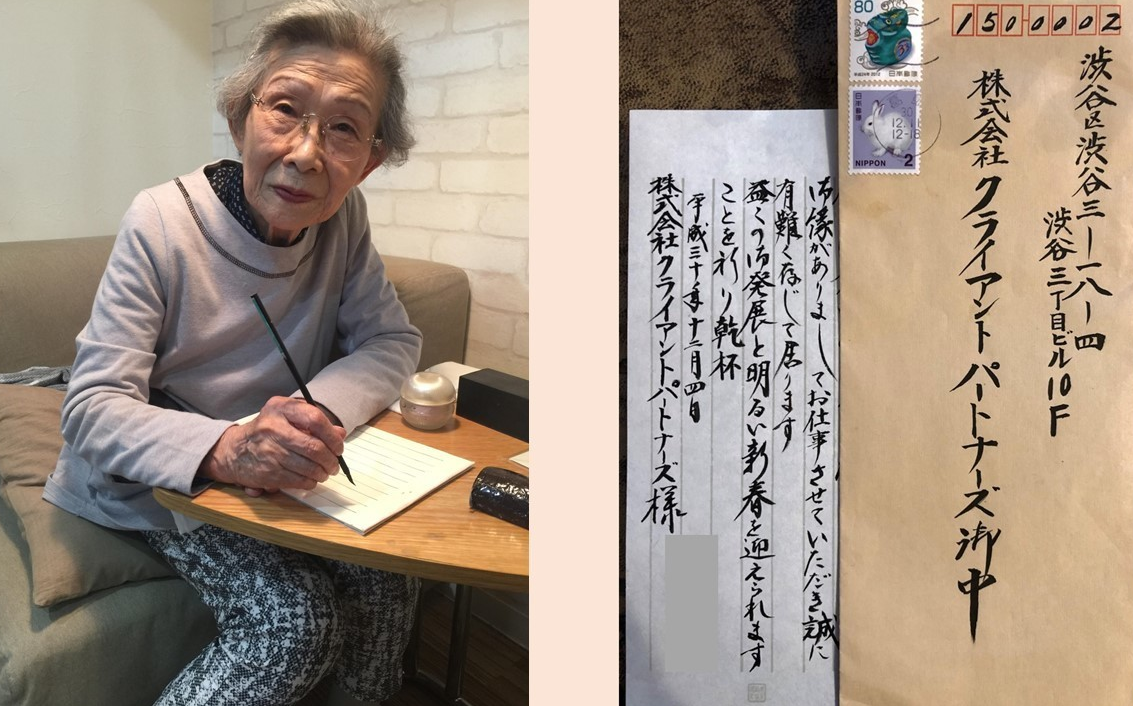 80
平成24年 2012
日本郵便
日本郵便
NIPPON
2
12-18
150-0002
渋谷区渋谷三ー一八ー四
渋谷三丁目ビル10F
株式会社クライアントパートナーズ御中
御縁がありましてお仕事させていただき誠に
有難く存じて居ります
益々の御発展と明るい新春を迎えられます
ことを祈り乾杯
平成三十年十二月四日
株式会社クライアントパートナーズ様